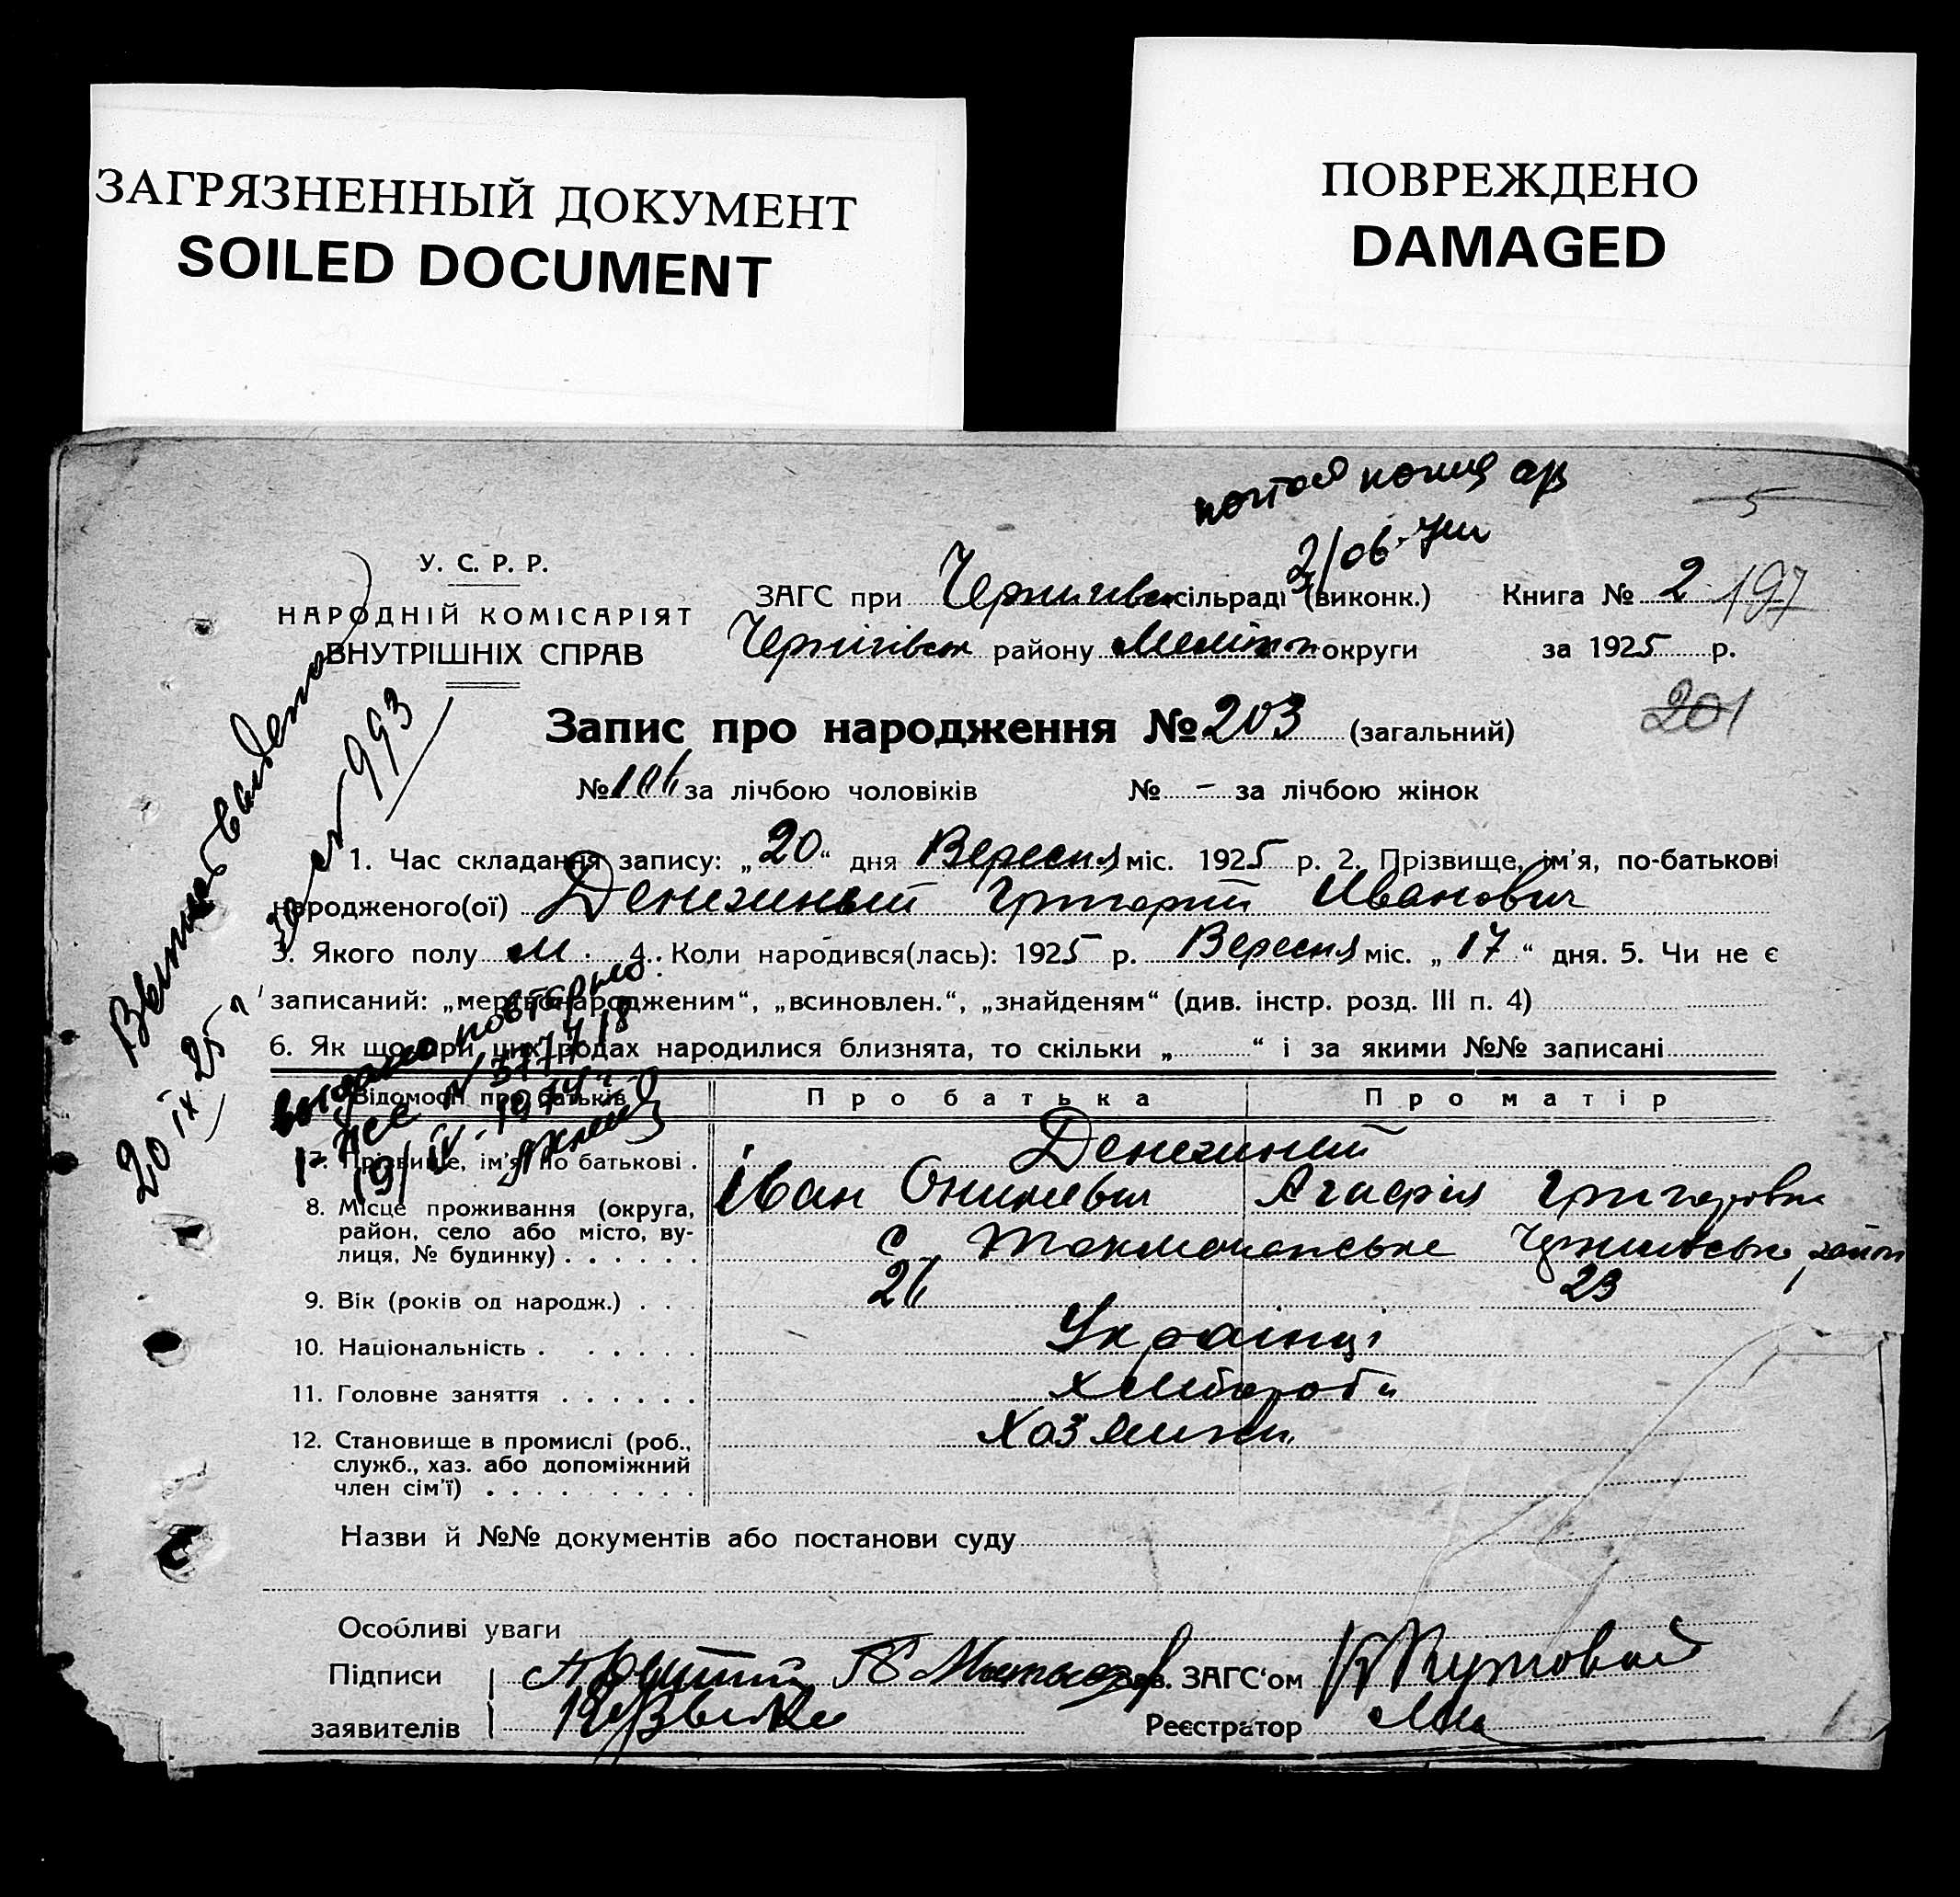 ЗАГРЯЗНЕННЫЙ ДОКУМЕНТ
SOILED DOCUMENT
ПОВРЕЖДЕНО
DAMAGED
5
У. С. Р. Р.
НАРОДНІЙ КОМІСАРІЯТ
ВНУТРІШНІХ СПРАВ
ЗАГС при сільраді (виконк.)
Книга № 2 197
Чернігівськ району Меліт округи
за 1925 р.
201
Запис про народження № 203 (загальний)
№ 106 за лічбою чоловіків № - за лічбою жінок
№ 993
1. Час складання запису: „20“ дня Вересня міс. 1925 р. 2. Прізвище, ім'я, по-батькові
народженого(ої) Денежный Григорий Иванович
3. Якого полу м. 4. Коли народився(лась): 1925 р. Вересня міс. „17“ дня. 5. Чи не є
записаний: „мертвонародженим“, „всиновлен.“, „знайденям“ (див. інстр. розд. III п. 4)
6. Як що при цих родах народилися близнята, то скільки „ “ і за якими №№ записані
20 IX 25
выдано повторно
Відомості про батьків
Про батька
Про матір
7. Прізвище, ім'я по батькові .
Денежный
Іван Агафія Григоровна
8. Місце проживання (округа,
район, село або місто, ву-
лиця, № будинку) . . . . . .
с Токмачанське район
9. Вік (років од народж.) . . .
26 23
10. Національність . . . . . .
Українці
11. Головне заняття . . . . . .
хлібороби
12. Становище в промислі (роб.,
служб., хаз. або допоміжний
член сім'ї) . . . . . . . . .
Хазяини
Назви й №№ документів або постанови суду
Особливі уваги
Підписи
заявителів
Зав. ЗАГС'ом
Реєстратор